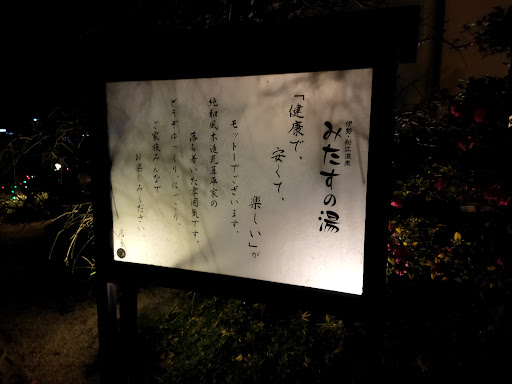 伊勢・船江温泉
みたすの湯
「健康で、
安くて、
楽しい」が
モットーでございます。
純和風木造瓦屋平家の
落ち着いた雰囲気です。
どうぞゆっくり、にっこり、
ご家族みんなで
お楽しみください。